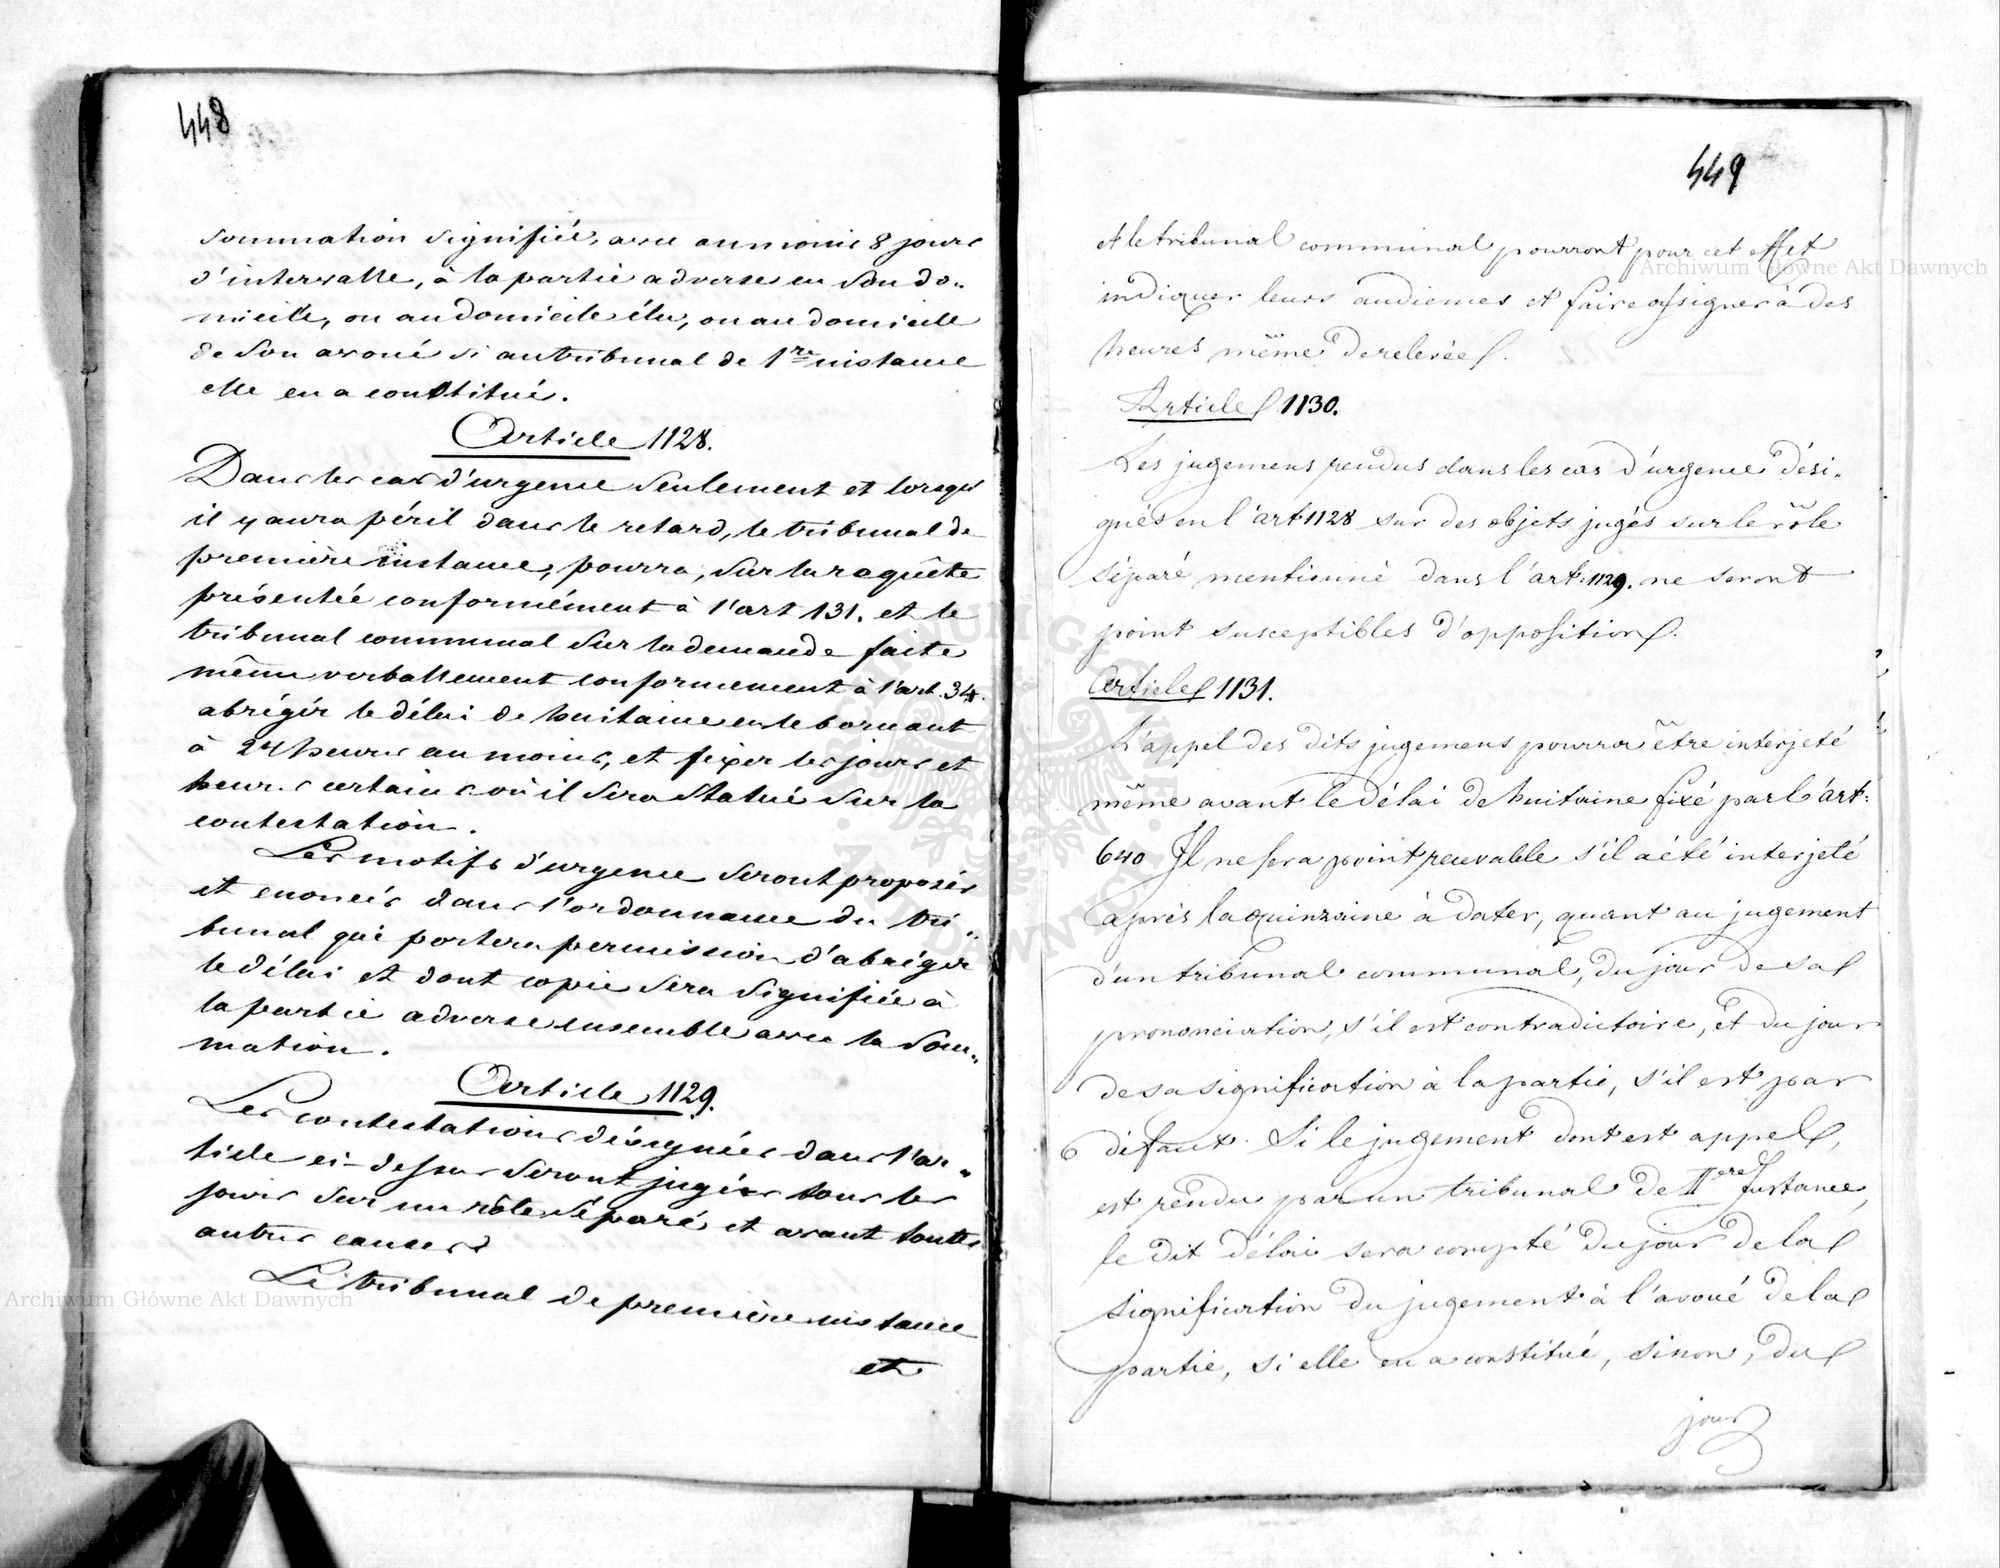 448
sommation signifiée, avec au moins 8 jours
d'intervalle, à la partie adverse en son do-
micile, ou au domicile élu, ou au domicile
de son avoué si au tribunal de 1re instance
elle en a constitué.
Article 1128.
Dans les cas d'urgence seulement et lorsqu'
il y aura péril dans le retard, le tribunal de
première instance, pourra, sur la requête
présentée conformément à l'art 131. et le
tribunal communal sur la demande faite
même verballement conformement à l'art. 34.
abrégér le délai de huitaine en le bornant
à 24 heures au moins, et fixer les jours et
heures certains où il sera statué sur la
contestation.
Les motifs d'urgence seront proposés
et enoncés dans l'ordonnance du tri-
bunal qui portera permission d'abréger
le délai et dont copie sera signifiée à
la partie adverse ensemble avec la som-
mation.
Article 1129.
Les contestations désignées dans l'ar-
ticle ci-dessus seront jugées tous les
jours sur un rôle séparé et avant toutes
autres causes
Le tribunal de première instance
et
449
et le tribunal communal pourront pour cet effet
indiquer leurs audiences et faire assigner à des
heures même de relevée.
Article 1130.
Les jugemens rendus dans les cas d'urgence dési-
gnés en l'art 1128 sur des objets jugés sur le rôle
séparé mentionné dans l'art: 1129. ne seront
point susceptibles d'opposition.
Article 1131.
L'appel des dits jugemens pourra être interjeté
même avant le délai de huitaine fixé par l'art:
640 Il ne sera point recevable s'il a été interjeté
après la quinzaine à dater, quant au jugement
d'un tribunal communal, du jour de sa
prononciation, s'il est contradictoire, et du jour
de sa signification à la partie, s'il est par
défaut. Si le jugement dont est appel,
est rendu par un tribunal de Iere Instance,
le dit délai sera compté du jour de la
signification du jugement à l'avoué de la
partie, si elle en a constitué, sinon, du
jour
Archiwum Główne Akt Dawnych
Archiwum Główne Akt Dawnych